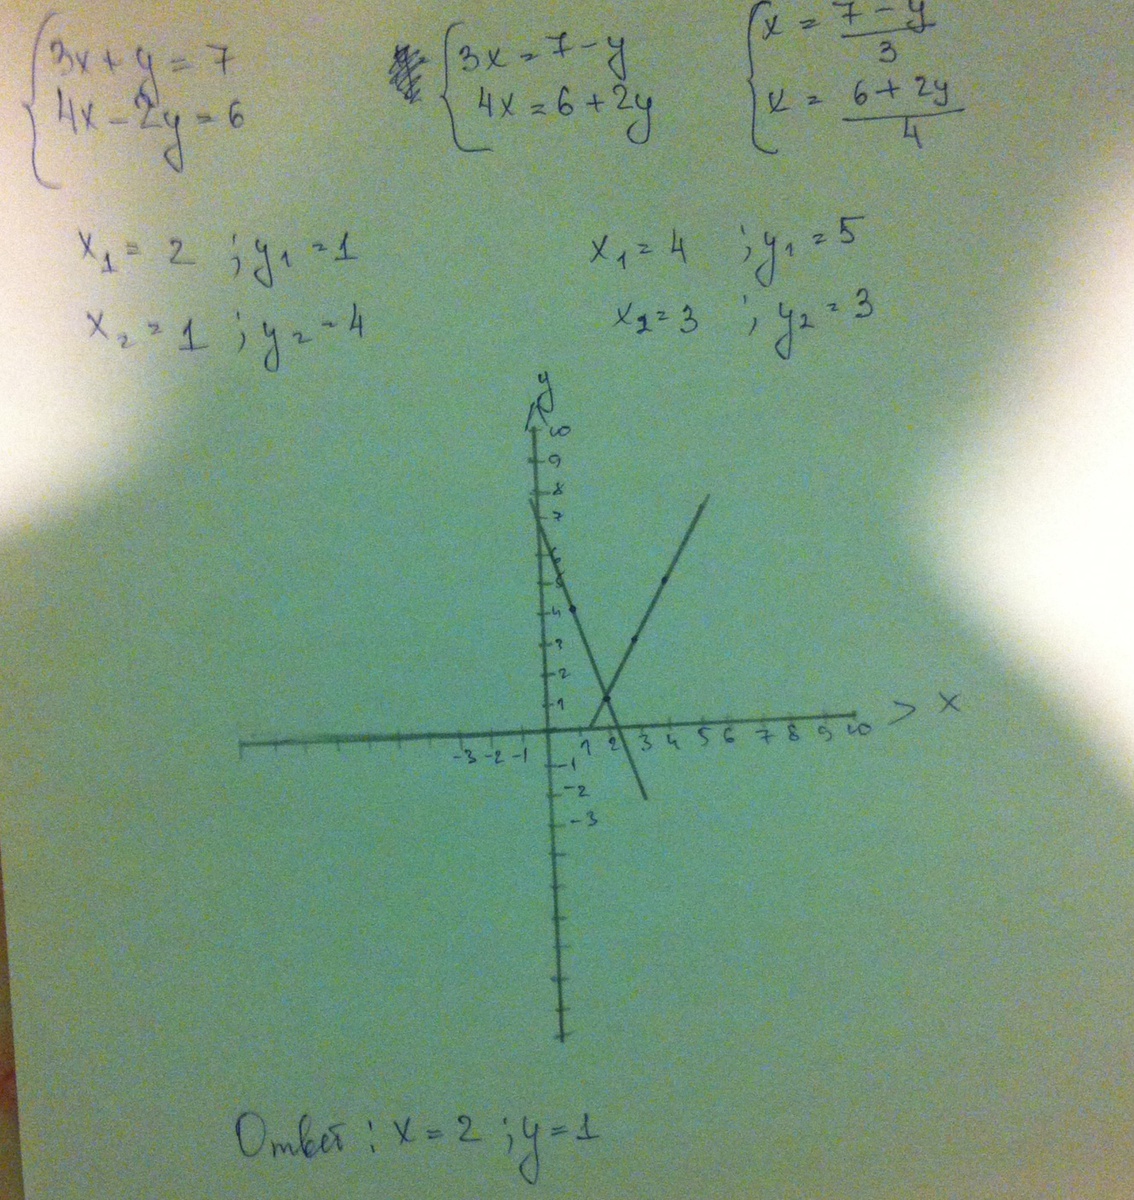 3x + y = 7
4x - 2y = 6
3x = 7 - y
4x = 6 + 2y
x = 7 - y / 3
x = 6 + 2y / 4
x₁ = 2 ; y₁ = 1
x₂ = 1 ; y₂ = 4
x₁ = 4 ; y₁ = 5
x₂ = 3 ; y₂ = 3
y
10
9
8
7
6
5
4
3
2
1
-3 -2 -1 1 2 3 4 5 6 7 8 9 10 x
-1
-2
-3
Ответ : x = 2 ; y = 1